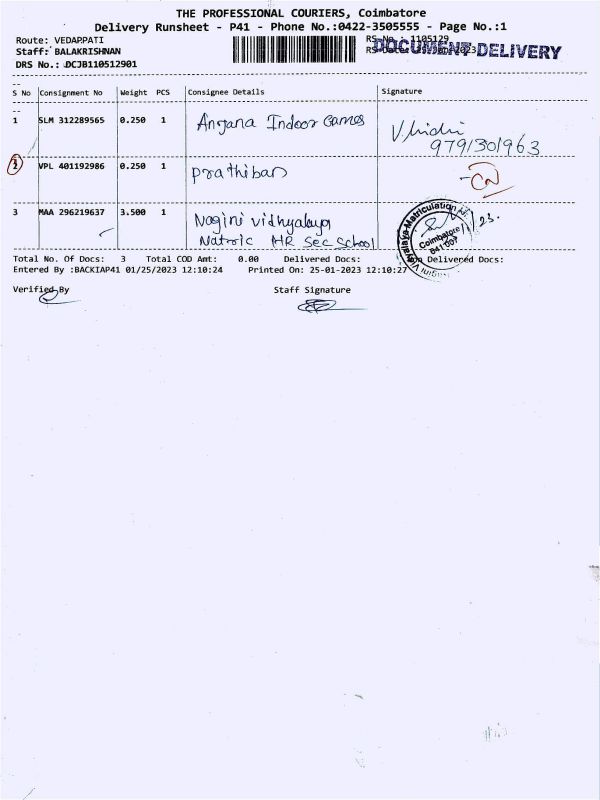 THE PROFESSIONAL COURIERS, Coimbatore
Delivery Runsheet - P41 - Phone No.:0422-3505555 - Page No.:1
Route: VEDAPPATI
RS No.: 1105129
Staff: BALAKRISHNAN
DOCUMENT DELIVERY
DRS No.: DCJB110512901
S No Consignment No Weight PCS Consignee Details Signature
1 SLM 312289565 0.250 1 Anjana Indoor Games
9791301963
2 VPL 401192986 0.250 1 prathiban
3 MAA 296219637 3.500 1 Nagini vidhyalaya
Matric HR Sec School
Coimbatore
641 007
Total No. Of Docs: 3 Total COD Amt: 0.00 Delivered Docs: Non Delivered Docs:
Entered By :BACKIAP41 01/25/2023 12:10:24 Printed On: 25-01-2023 12:10:27
Verified By Staff Signature